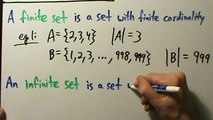 A finite set is a set with finite cardinality
eg1: A={2,3,4} |A|=3
B={1,2,3,...,998,999} |B|=999
An infinite set is a set